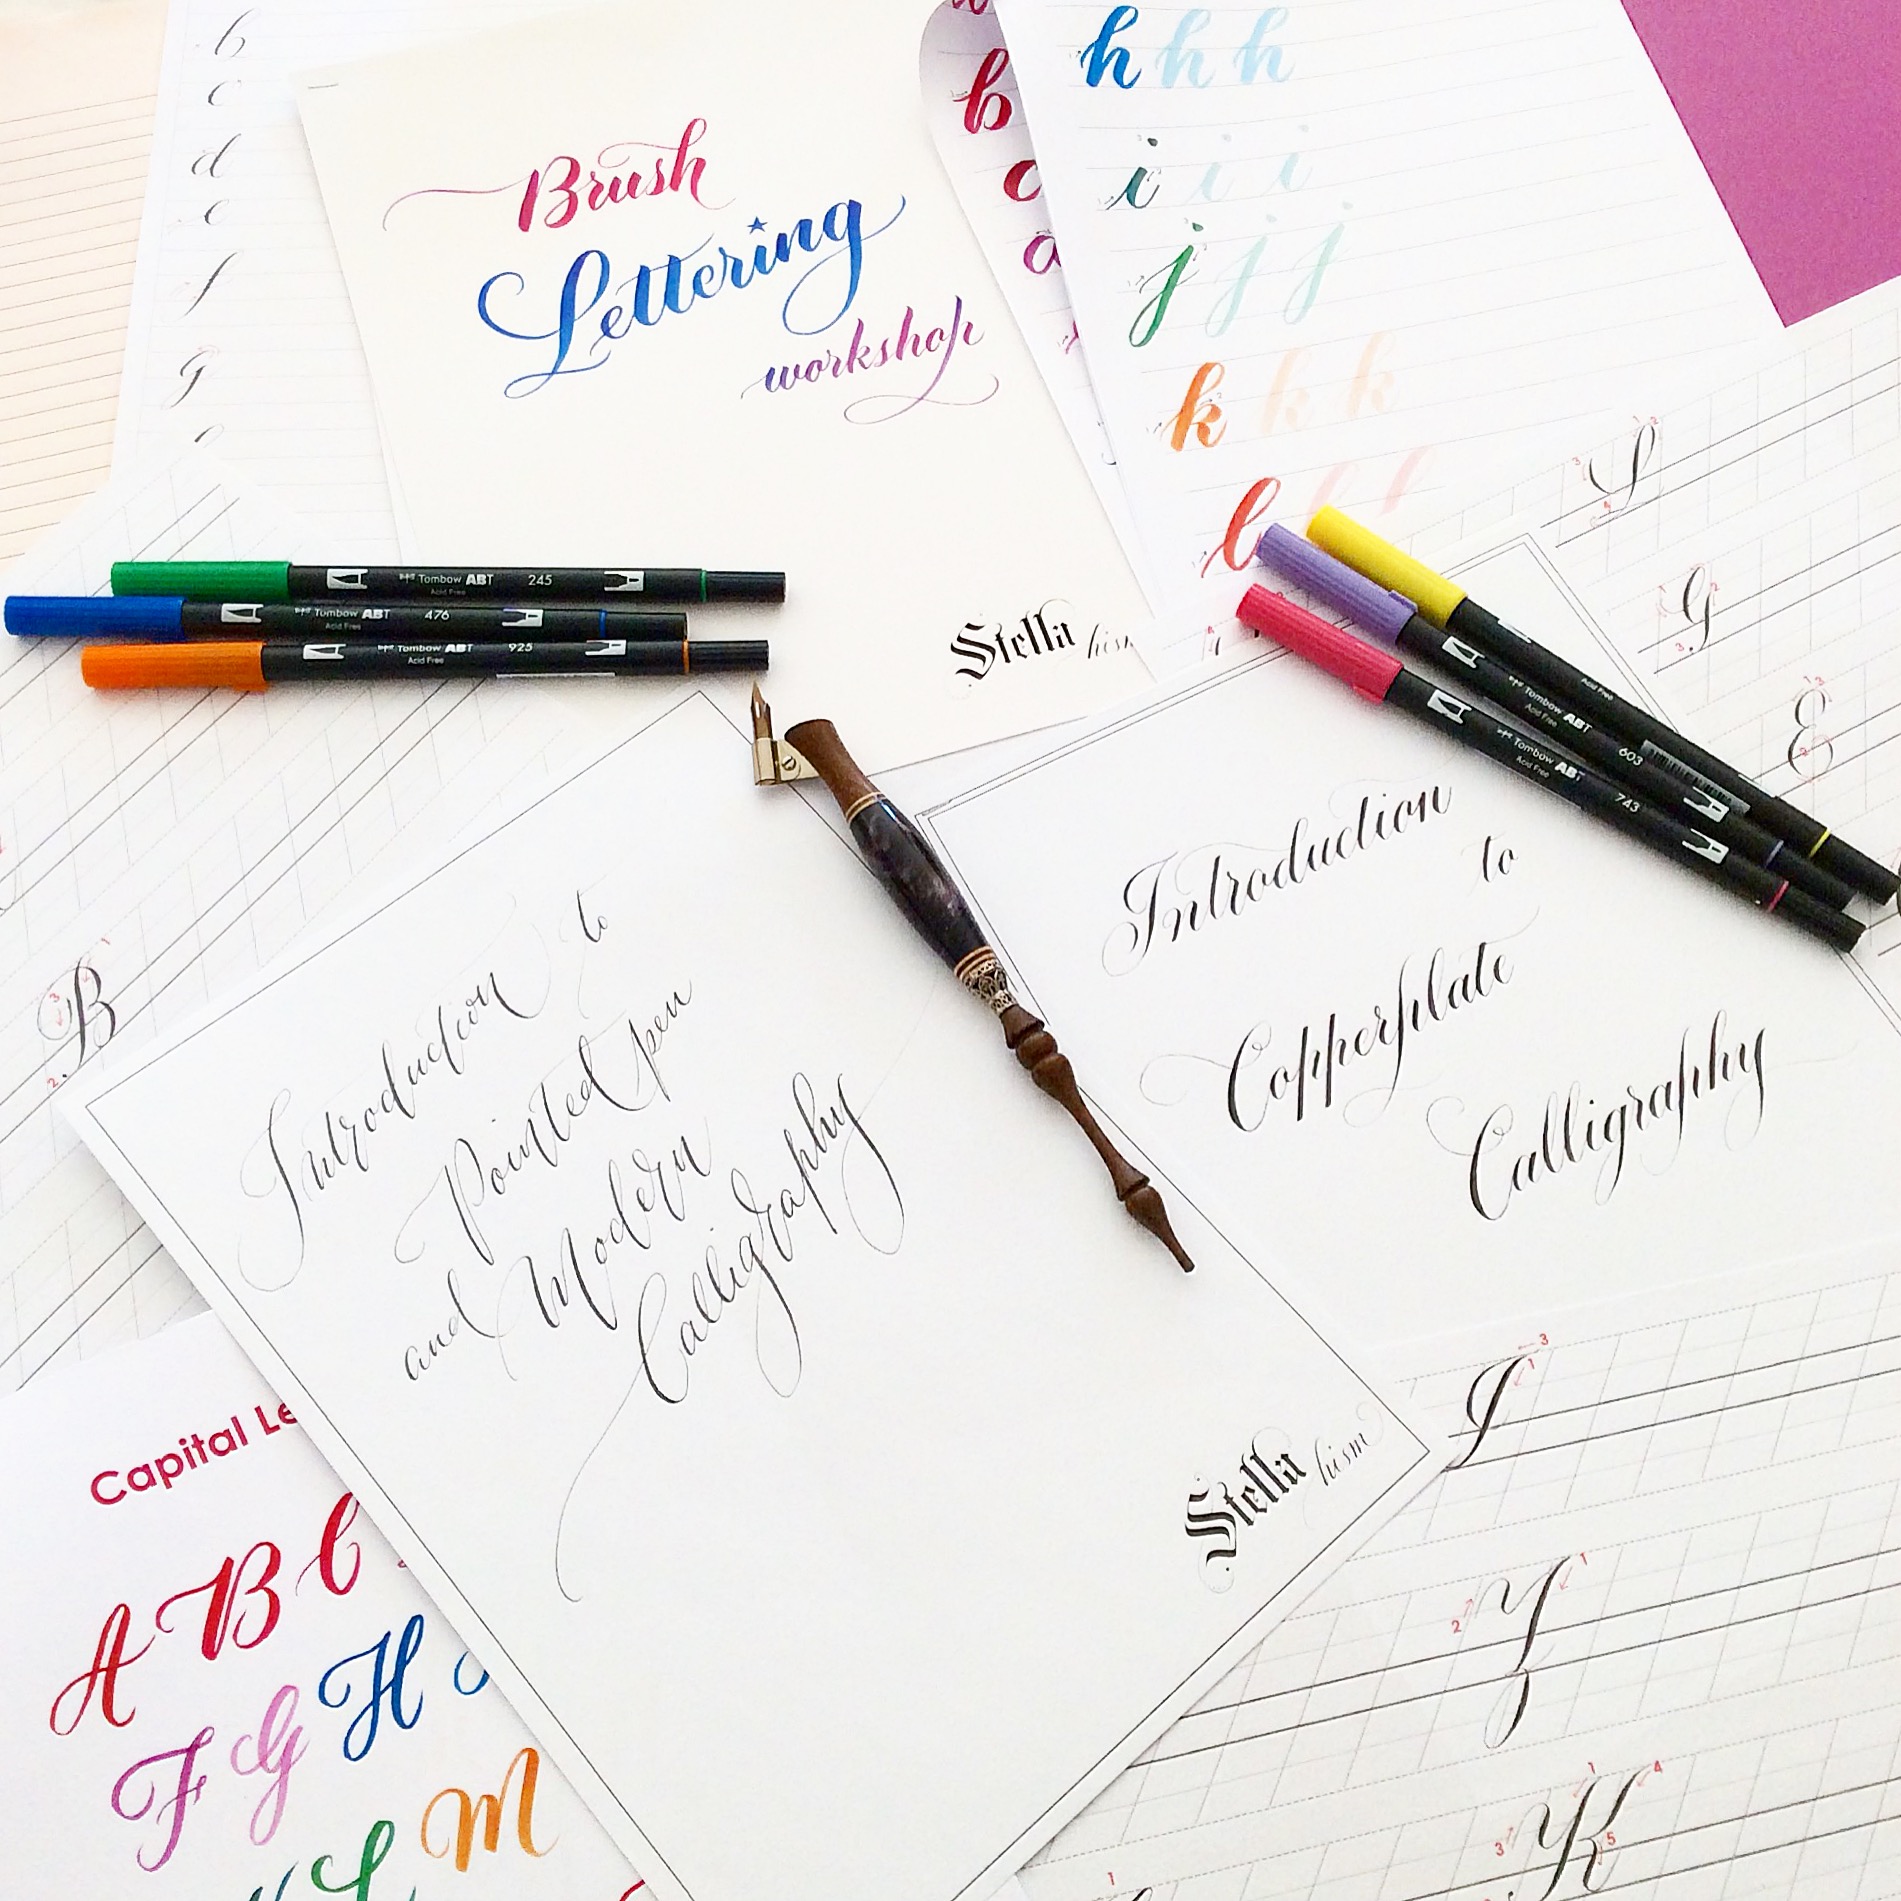 b
c
d
e
f
g
Brush
Lettering
workshop
Stella hism
b
c
h h h
i i i
j j j
k k k
l l l
Tombow ABT 245
Acid Free
Tombow ABT 476
Acid Free
Tombow ABT 925
Acid Free
Acid Free
Tombow ABT 603
Acid Free
Tombow ABT 743
Acid Free
G
E
B
Introduction
to
Copperplate
Calligraphy
Introduction to
Pointed pen
and Modern
Calligraphy
Stella hism
Capital Le
A B C
F G H
L M
Y
K